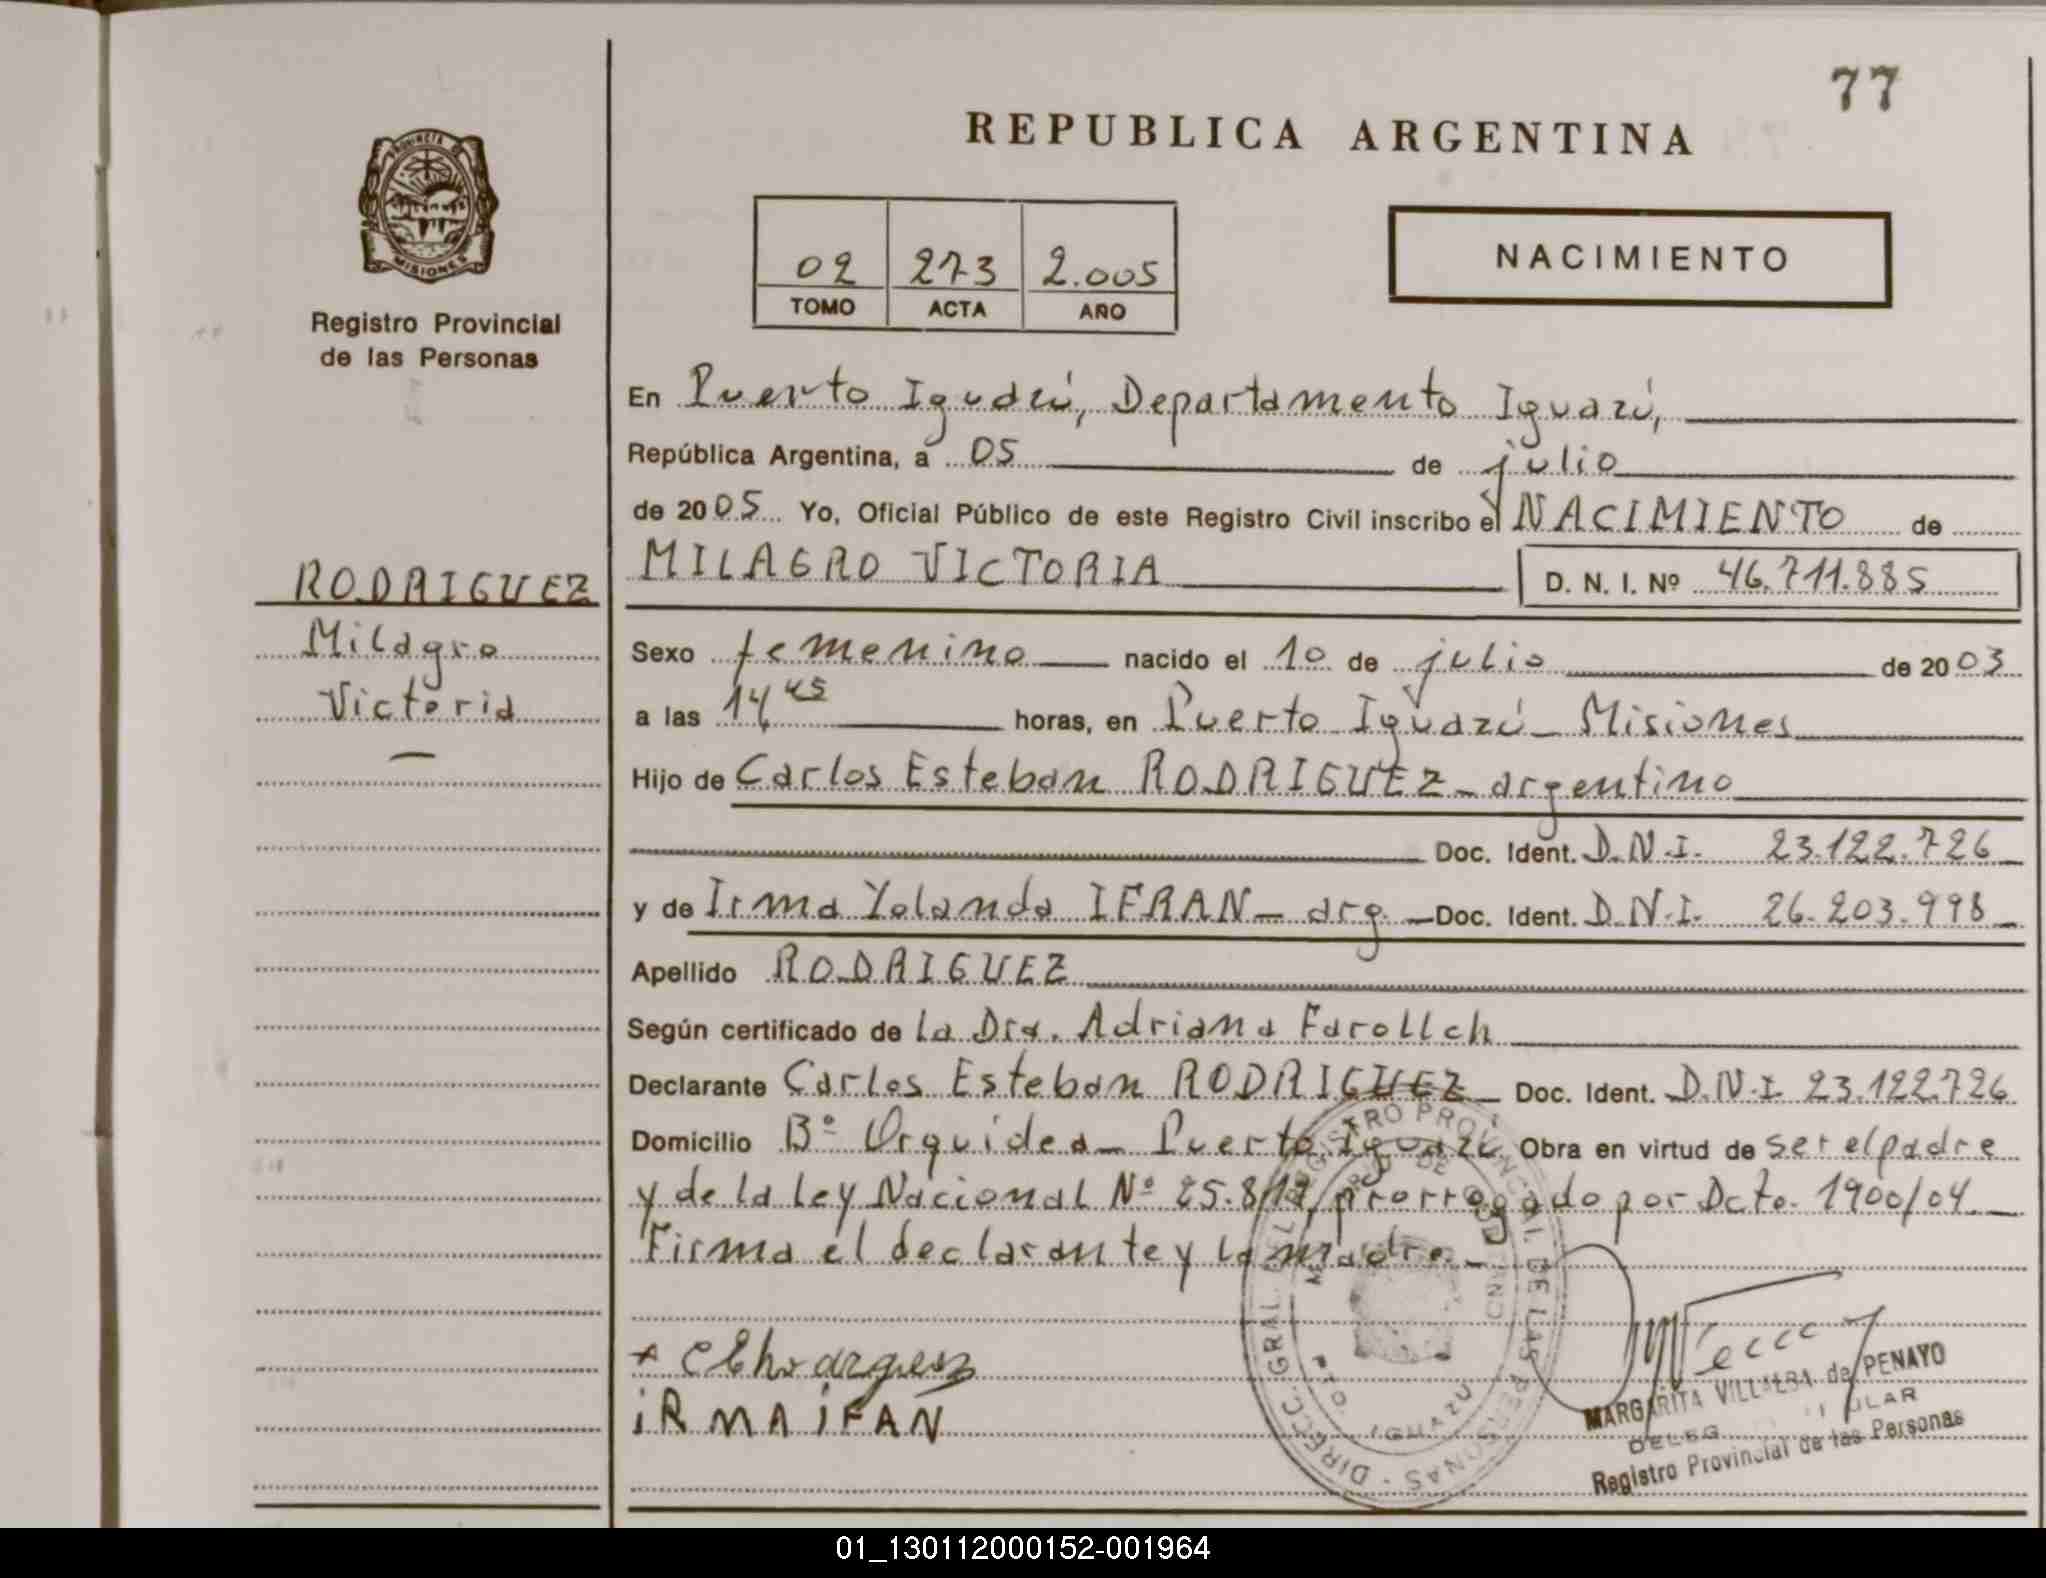 77
REPUBLICA ARGENTINA
PROVINCIA DE
MISIONES
Registro Provincial
de las Personas
02 273 2.005
TOMO ACTA AÑO
NACIMIENTO
En Puerto Iguazú, Departamento Iguazú,
República Argentina, a 05 de julio
de 2005 Yo, Oficial Público de este Registro Civil inscribo el NACIMIENTO de
RODRIGUEZ
Milagro
Victoria
MILAGRO VICTORIA D. N. I. Nº 46.711.885
Sexo femenino nacido el 10 de julio de 2003
a las 14 45 horas, en Puerto Iguazú - Misiones
Hijo de Carlos Esteban RODRIGUEZ - argentino
Doc. Ident. D.N.I. 23.122.726
y de Irma Yolanda IFRAN - arg. - Doc. Ident. D.N.I. 26.203.998
Apellido RODRIGUEZ
Según certificado de la Dra. Adriana Farollch
Declarante Carlos Esteban RODRIGUEZ - Doc. Ident. D.N.I. 23.122.726
Domicilio Bº Orquidea - Puerto Iguazú Obra en virtud de ser el padre
y de la Ley Nacional Nº 25.819, prorrogado por Dcto. 1900/04.
Firma el declarante y la madre.
IRMA IFAN
DIRECC. GRAL. DEL REGISTRO PROVINCIAL DE LAS PERSONAS
IGUAZU
MARGARITA VILLALBA de PENAYO
Registro Provincial de las Personas
01_130112000152-001964